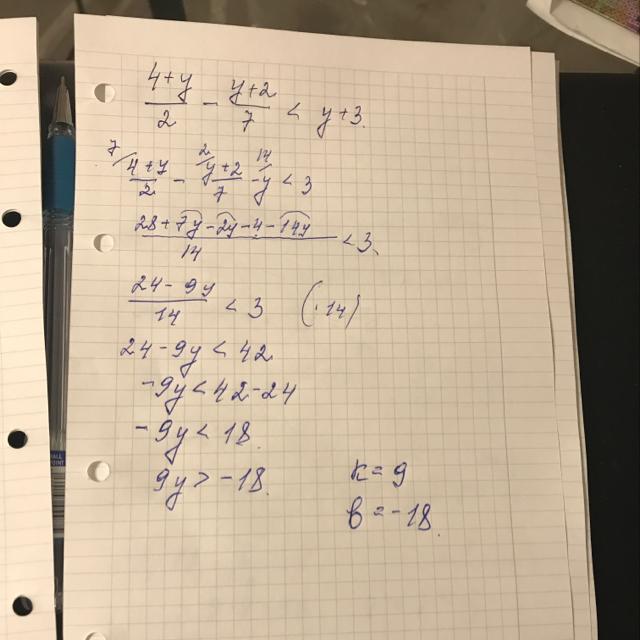 4+y/2 - y+2/7 < y+3.
7/ 4+y/2 - 2/ y+2/7 - 14/ y < 3
28+7y-2y-4-14y/14 < 3.
24-9y/14 < 3 (·14)
24-9y < 42
-9y < 42-24
-9y < 18.
9y > -18.
k = 9
b = -18.